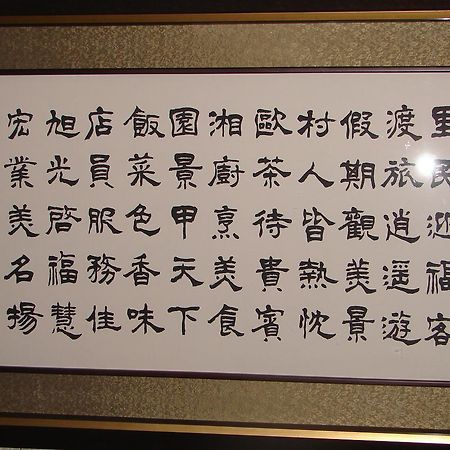 里民迎福客
渡旅逍遙遊
假期觀美景
村人皆熱忱
歐茶待貴賓
湘廚烹美食
園景甲天下
飯菜色香味
店員服務佳
旭光啓福慧
宏業美名揚